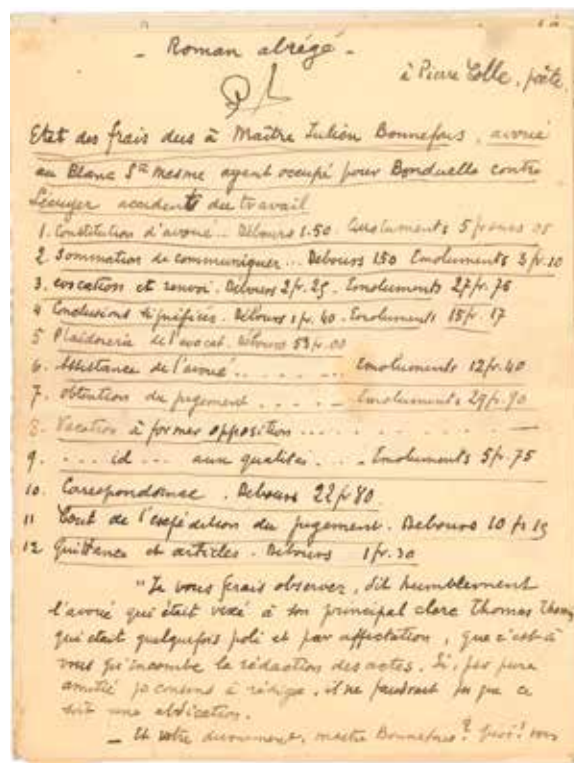 - Roman abrégé -
à Pierre Colle, poète.
Etat des frais dus à Maître Julien Bonnefous, avoué
au Blanc Ste Mesme ayant occupé pour Bonduelle contre
Lécuyer accidents du travail
1. Constitution d'avoué .. Débours 1.50. Emoluments 5 francs 05
2. Sommation de communiquer ... Debours 1.50 Emoluments 3 fr. 10
3. evocation et renvoi. Debours 2 fr. 25. Emoluments 27 fr. 75
4 Conclusions signifiées. Débours 1 fr. 40. Emoluments 15 fr. 17
5 Plaidoierie de l'avocat. Débours 53 fr. 00
6. Assistance de l'avoué . . . . . . . Emoluments 12 fr. 40
7. obtention du jugement . . . . . Emoluments 29 fr. 90
8. Vacation à former opposition . . . . . . . . . —
9. . . . id . . . aux qualités . . . . Emoluments 5 fr. 75
10. Correspondance . Debours 22 fr 80.
11 Cout de l'expédition du jugement. Debours 10 fr 15
12 Quittance et articles. Débours 1 fr. 30
"Je vous ferais observer, dit humblement
l'avoué qui était vexé à son principal clerc Thomas
qui etait quelquefois poli et par affectation, que c'est à
vous qu'incombe la rédaction des actes. Si, par pure
amitié je consens à rédiger, il ne faudrait pas que ce
soit une abdication.
_ Et votre devouement, maitre Bonnefous? Quoi! vous